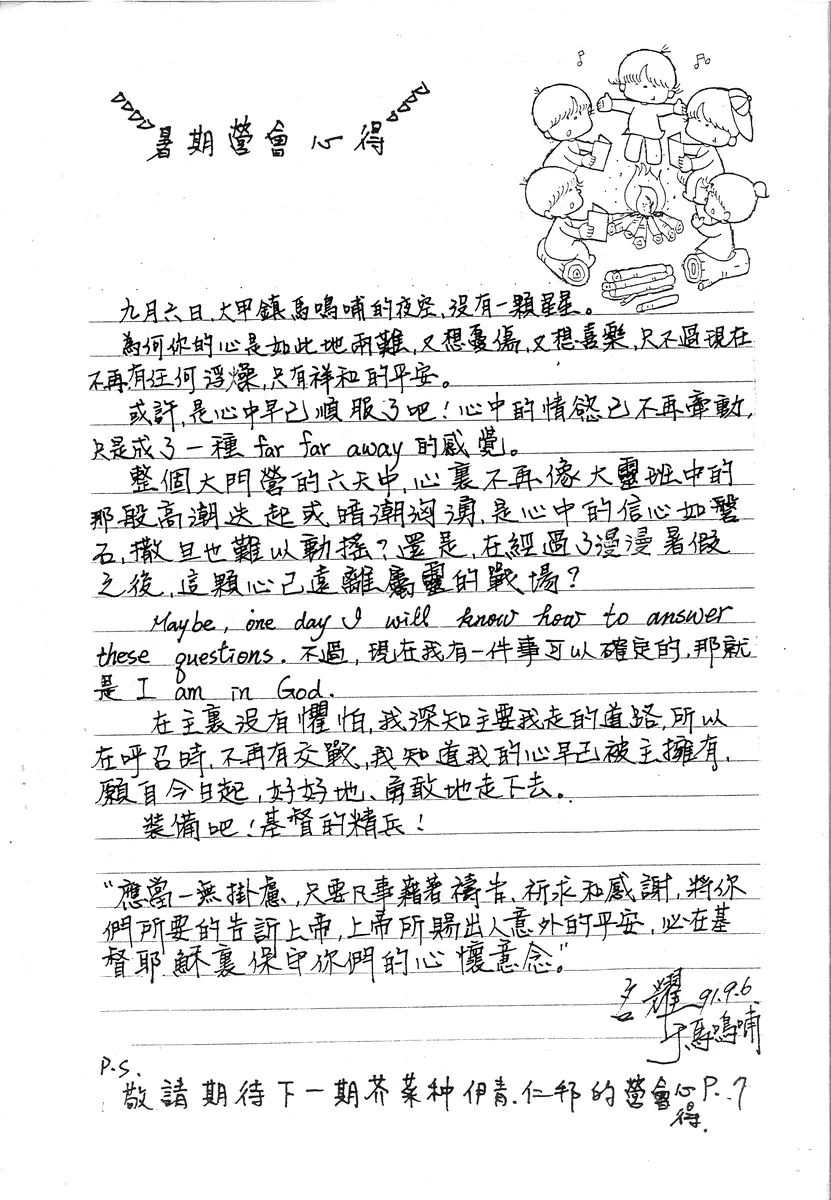 暑期營會心得
九月六日,大甲鎮馬鳴哺的夜空,沒有一顆星星。
為何你的心是如此地兩難,又想憂傷,又想喜樂,只不過現在
不再有任何浮燥,只有祥和的平安。
或許,是心中早已順服了吧!心中的情慾已不再牽動,
只是成了一種 far far away 的感覺。
整個大門營的六天中,心裏不再像大靈班中的
那般高潮迭起或暗潮洶湧,是心中的信心如磐
石,撒旦也難以動搖?還是,在經過了漫漫暑假
之後,這顆心已遠離屬靈的戰場?
Maybe, one day I will know how to answer
these questions. 不過,現在我有一件事可以確定的,那就
是 I am in God.
在主裏沒有懼怕,我深知主要我走的道路,所以
在呼召時,不再有交戰,我知道我的心早已被主擁有,
願自今日起,好好地、勇敢地走下去。
裝備吧!基督的精兵!
"應當一無掛慮,只要凡事藉著禱告、祈求和感謝,將你
們所要的告訴上帝,上帝所賜出人意外的平安,必在基
督耶穌裏保守你們的心懷意念。"
名耀 91.9.6.
于馬鳴哺
P.S.
敬請期待下一期芥菜种伊青.仁邦的營會心得. P.7